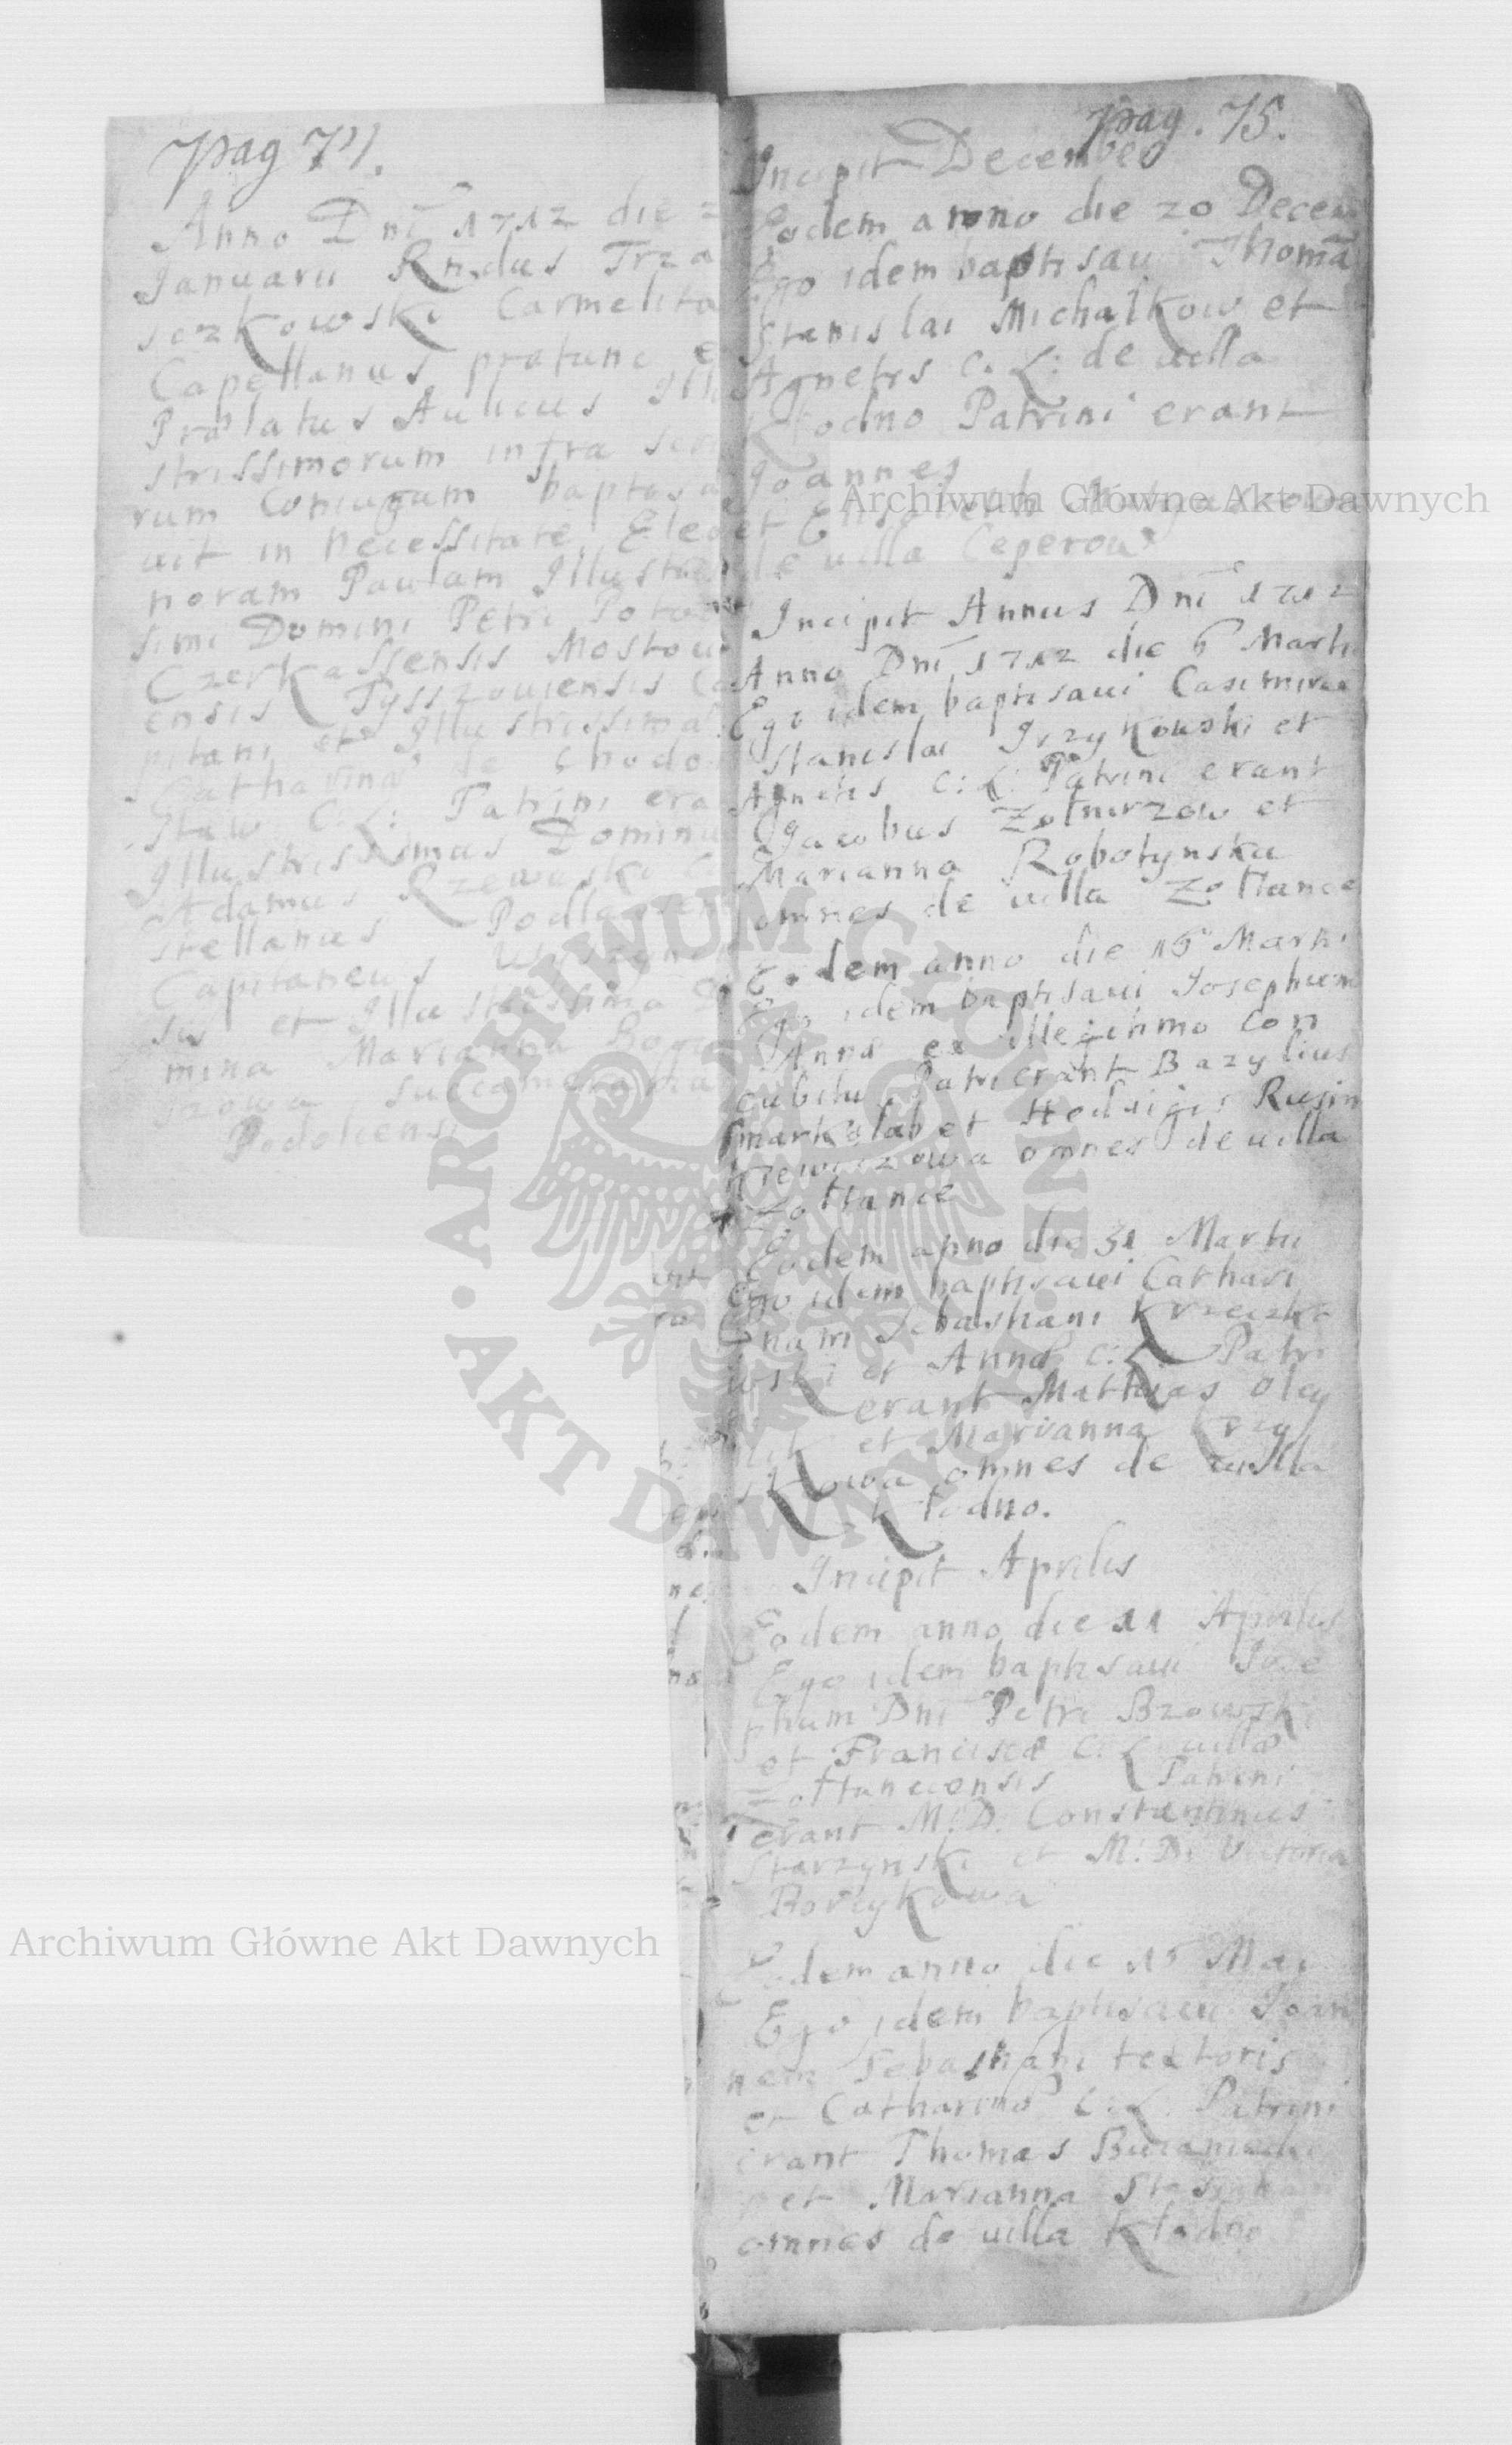 pag 74.
Anno Dni 1712 die 2
Januarii Rndus Trza
sczkowski Carmelita
Capellanus pratunc e
Prælatus Aulicus Illu
strissimorum infra scri
rum Coniugum baptisa
uit in necessitate Eleo
noram Paulam Illustris
simi Domini Petri Potoc
Czerkassensis Mostoui
ensis Tysszouiensis Ca
pitani et Illustrissimæ
Catharinæ de Chodo
staw C: L: Patrini era
Illustrissimus Dominu
Adamus Rzewuski Ca
stellanus Podlassen
Capitaneus
sis et Illustrissima D
mina Marianna
succamera
Podoliensi
pag. 75.
Incipit December
Eodem anno die 20 Decem
Ego idem baptisaui Thomã
Stanislai Michałkow et
Agnetis C. L: de uilla
Kłodno Patrini erant
Joannes
et Elisabeth
de uilla Ceperow
Incipit Annus Dni 1712
Anno Dni 1712 die 6 Martii
Ego idem baptisaui Casimirum
Stanislai Jrzykowski et
Agnetis C: L: Patrini erant
Jacobus Zołnirzow et
Marianna Robotynska
omnes de uilla Zołtance
Eodem anno die 16 Martii
Ego idem baptisaui Josephum
Annæ ex illegitimo con
cubitu Patri erant Bazylius
smarkolab et Heduigis Rusin
kiewiczowa omnes de uilla
Zołtance
Eodem anno die 31 Martii
Ego idem baptisaui Cathari
nam Sebastiani Krzeczko
wski et Annæ C: L: Patri
erant Mathias Oley
nik et Marianna Krzy
skowa omnes de uilla
Kłodno.
Incipit Aprilis
Eodem anno die 11 Aprilis
Ego idem baptisaui Jose
phum Dni Petri Bzowski
et Franciscæ C: L: uillæ
Zołtanecensis Patrini
erant M: D: Constantinus
Starzynski et M: D: Victoria
Boreykowa
Eodem anno die 15 Mai
Ego idem baptisaui Joan
nem Sebastiani textoris
et Catharinæ C: L: Patrini
erant Thomas
et Marianna
omnes de uilla Kłodno
Archiwum Główne Akt Dawnych
Archiwum Główne Akt Dawnych
ARCHIWUM GŁÓWNE
AKT DAWNYCH